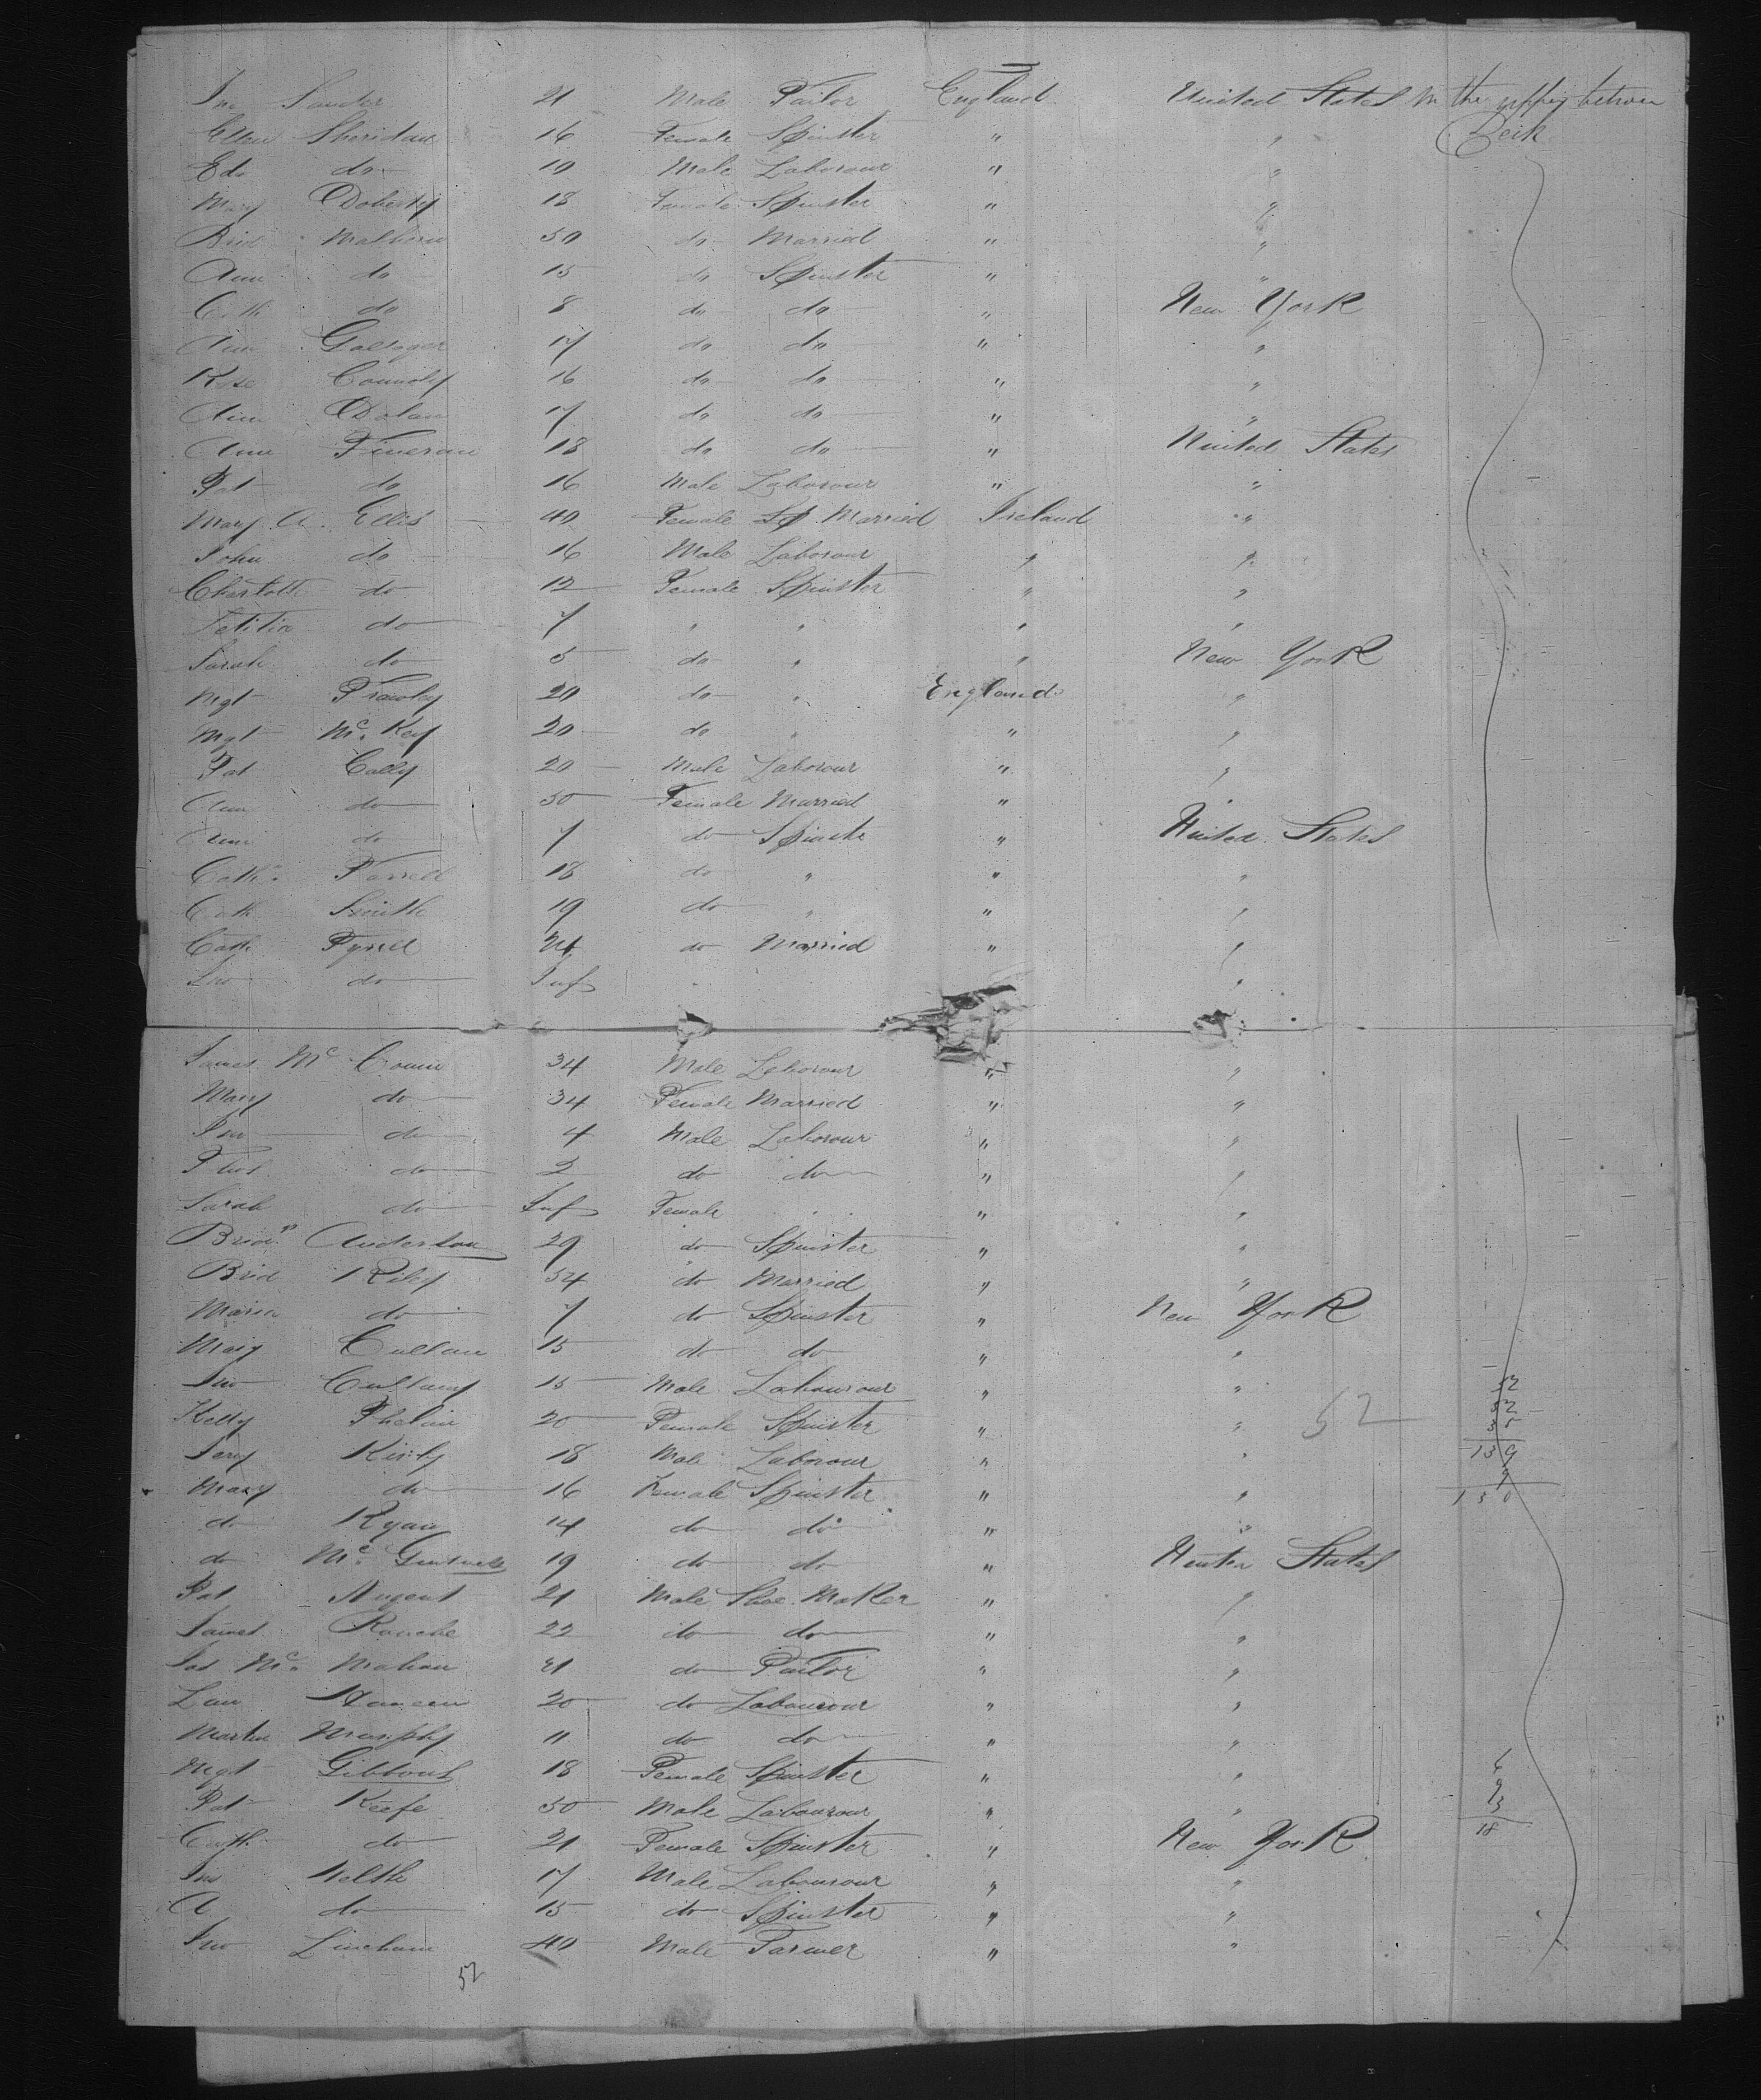 Jno Sauter 21 Male Tailor England United States In the upper between
Ellen Sheridan 16 Female Spinster " " Deck
Edw do 19 Male Labourour " "
Mary Doherty 18 Female Spinster " "
Brid 30 do Married " "
Ann do 15 do Spinster " "
Cath do 8 do do " New York
Ann 17 do do " "
Rose Connoly 16 do do " "
Ann Dolan 17 do do " "
Ann Fineran 18 do do " United States
Pat do 16 Male Labourour " "
Mary A. Ellis 40 Female Sp. Married Ireland "
John do 16 Male Laborour " "
Charlotte do 12 Female Spinster " "
Letitia do 7 " " " "
Sarah do 5 do " " New York
Mgt Frawley 20 do " England "
Mgt Mc. Key 20 do " " "
Pat Cally 20 Male Laborour " "
Ann do 30 Female Married " "
Ann do 7 do Spinste " United States
Cath. Farrell 18 do " " "
Cath Smith 19 do " " "
Cath Tyrrell 24 do Married " "
Jno do Inf "
James Mc 34 Male Laborour " "
Mary do 34 Female Married " "
Jno do 4 Male Laborour " "
Thos do 2 do do " "
Sarah do Inf Female " "
Brid Anderson 29 do Spinster " "
Brid Riley 34 do Married " "
Maria do 7 do Spinster " New York
Mary Cullan 15 do do " "
Jno 15 Male Labourour " " 52
Kelly Phelan 20 Female Spinster " " 52 52 35
Jery Kirby 18 Male Laborour " " 139
Mary do 16 Female Spinster " " 9 150
do Ryan 14 do do " "
do Mc. 19 do do " United States
Pat Nugent 21 Male Shoe Maker " "
James Rouche 22 do do " "
Jas Mc. Mahan 21 do Tailor " "
Lau 20 do Labourour " "
Martin Murphy 11 do do " "
Mgt Gibbons 18 Female Spinster " " 6
Pat Keefe 30 Male Labourour " " 9 3
Cath do 21 Female Spinster " New York 18
Jno Welsh 17 Male Labourour " "
A do 15 do Spinster " "
Jno Lineham 40 Male Farmer " "
52